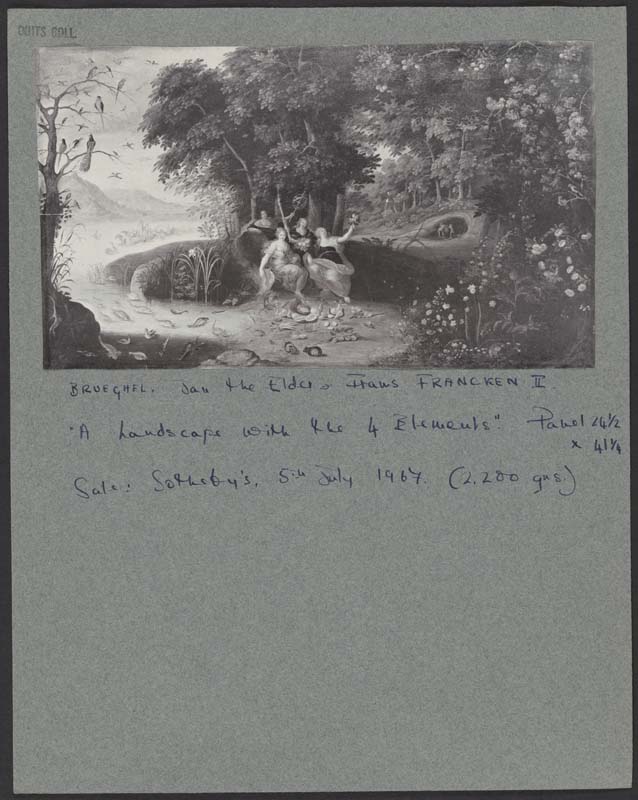 DUITS COLL.
BRUEGHEL. Jan the Elder & Frans FRANCKEN II
"A Landscape with the 4 Elements". Panel 24½
x 41¼
Sale: Sotheby's, 5th July 1967. (2,200 gns.)